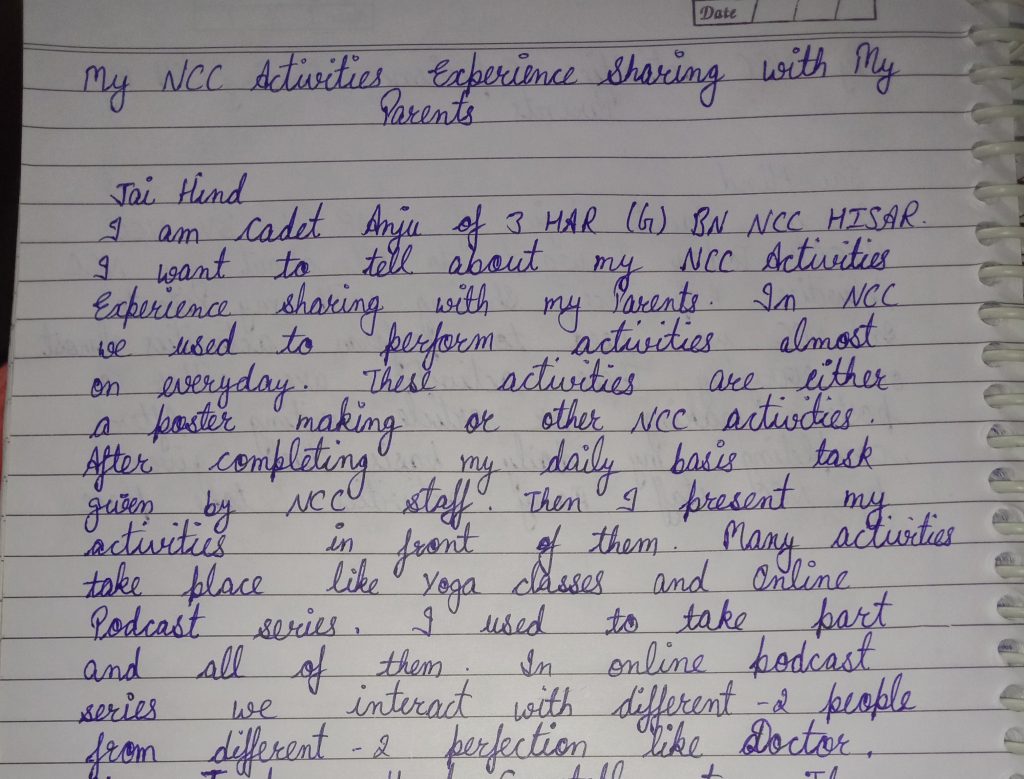 Date
My NCC Activities Experience sharing with My
Parents
Jai Hind
I am cadet Anju of 3 HAR (G) BN NCC HISAR.
I want to tell about my NCC Activities
Experience sharing with my Parents. In NCC
we used to perform activities almost
on everyday. These activities are either
a poster making or other NCC activities.
After completing my daily basis task
given by NCC staff. Then I present my
activities in front of them. Many activities
take place like yoga classes and Online
Podcast series. I used to take part
and all of them. In online podcast
series we interact with different -2 people
from different -2 perfection like Doctor,